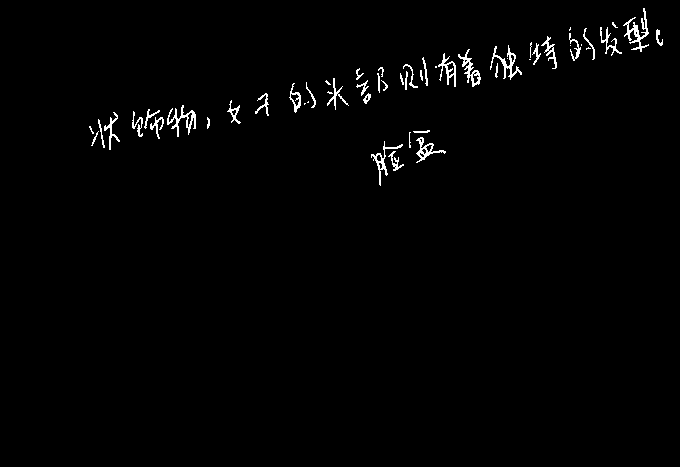 状饰物,女子的头部则有着独特的发型。
脸盆